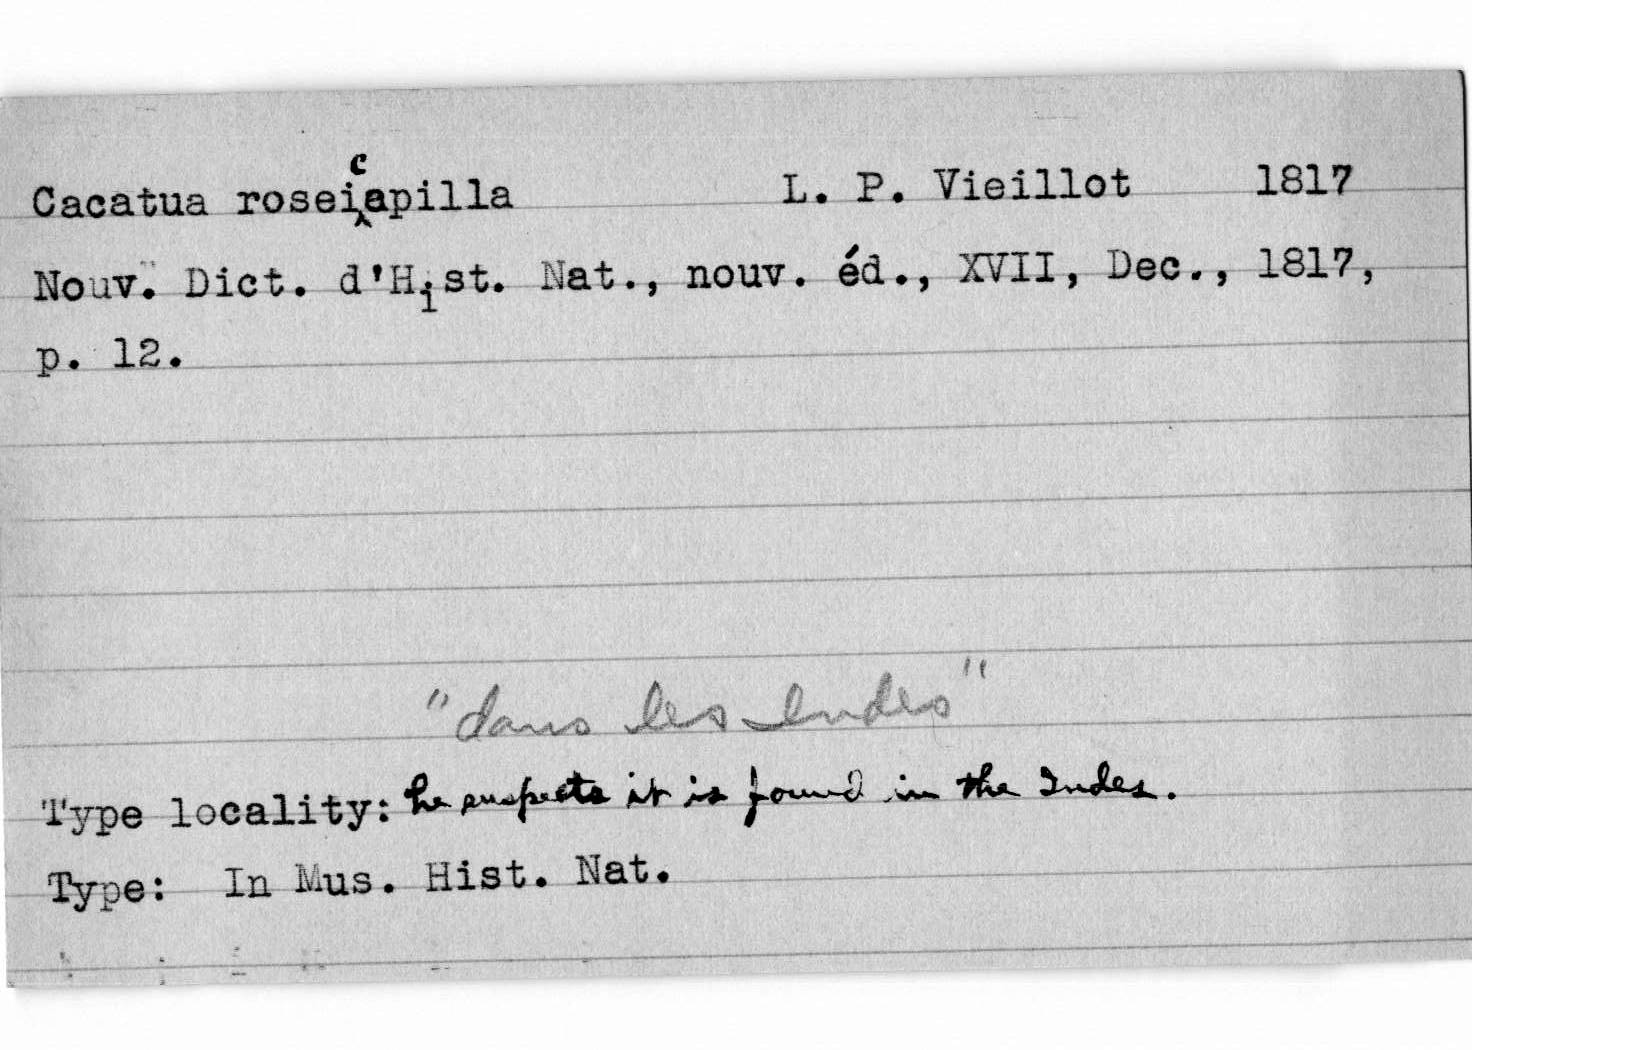 Cacatua roseicapilla L. P. Vieillot 1817
Nouv. Dict. d'Hist. Nat., nouv. éd., XVII, Dec., 1817,
p. 12.
"dans les Indes"
Type locality: he suspects it is found in the Indes.
Type: In Mus. Hist. Nat.